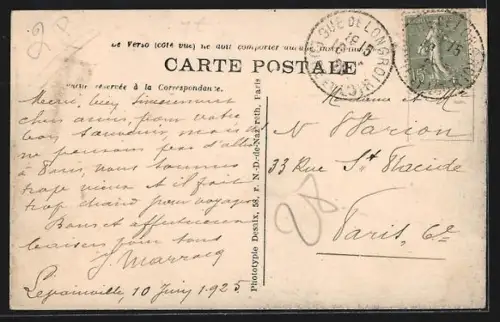 Le Verso (côté vue) ne doit comporter aucune
CARTE POSTALE
Partie réservée à la Correspondance.
GUE DE LONGROI
Merci, bien sincèrement
chers amis, pour votre
bon souvenir, mais
ne pensons pas d'aller
à Paris, nous sommes
trop vieux et il fait
trop chaud pour voyager
Bons et affectueux
baisers pour tous
J. Marrocq
10 Juin 1925
Phototypie Desaix, 58, r. N.-D.-de-Nazareth, Paris
Madame et Mr
Varion
33 Rue St Placide
Paris, 6e
28